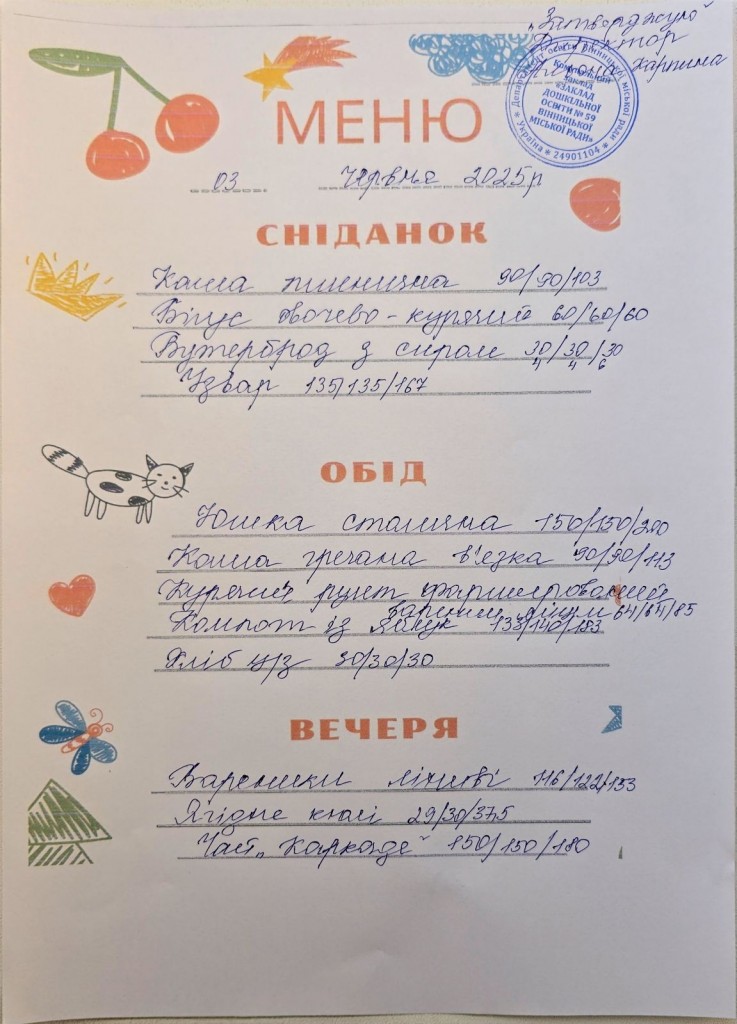 „Затверджую"
Директор
Харпина
Департамент освіти Вінницької міської ради
Україна * 24901104 *
Комунальний
заклад
«ЗАКЛАД
ДОШКІЛЬНОЇ
ОСВІТИ № 59
ВІННИЦЬКОЇ
МІСЬКОЇ РАДИ»
МЕНЮ
03 червня 2025р
СНІДАНОК
Каша пшенична 90/90/103
Бігус овочево-курячий 60/60/60
Бутерброд з сиром 30/4/30/4/30/6
Узвар 135/135/167
ОБІД
Юшка столична 150/150/200
Каша гречана в'язка 90/90/113
Курячий рулет фарширований
варених яйцем 64/64/85
Компот із яблук 138/140/183
Хліб ц/з 30/30/30
ВЕЧЕРЯ
Вареники ліниві 116/122/153
Ягідне желе 29/30/37,5
Чай „Каркаде" 150/150/180